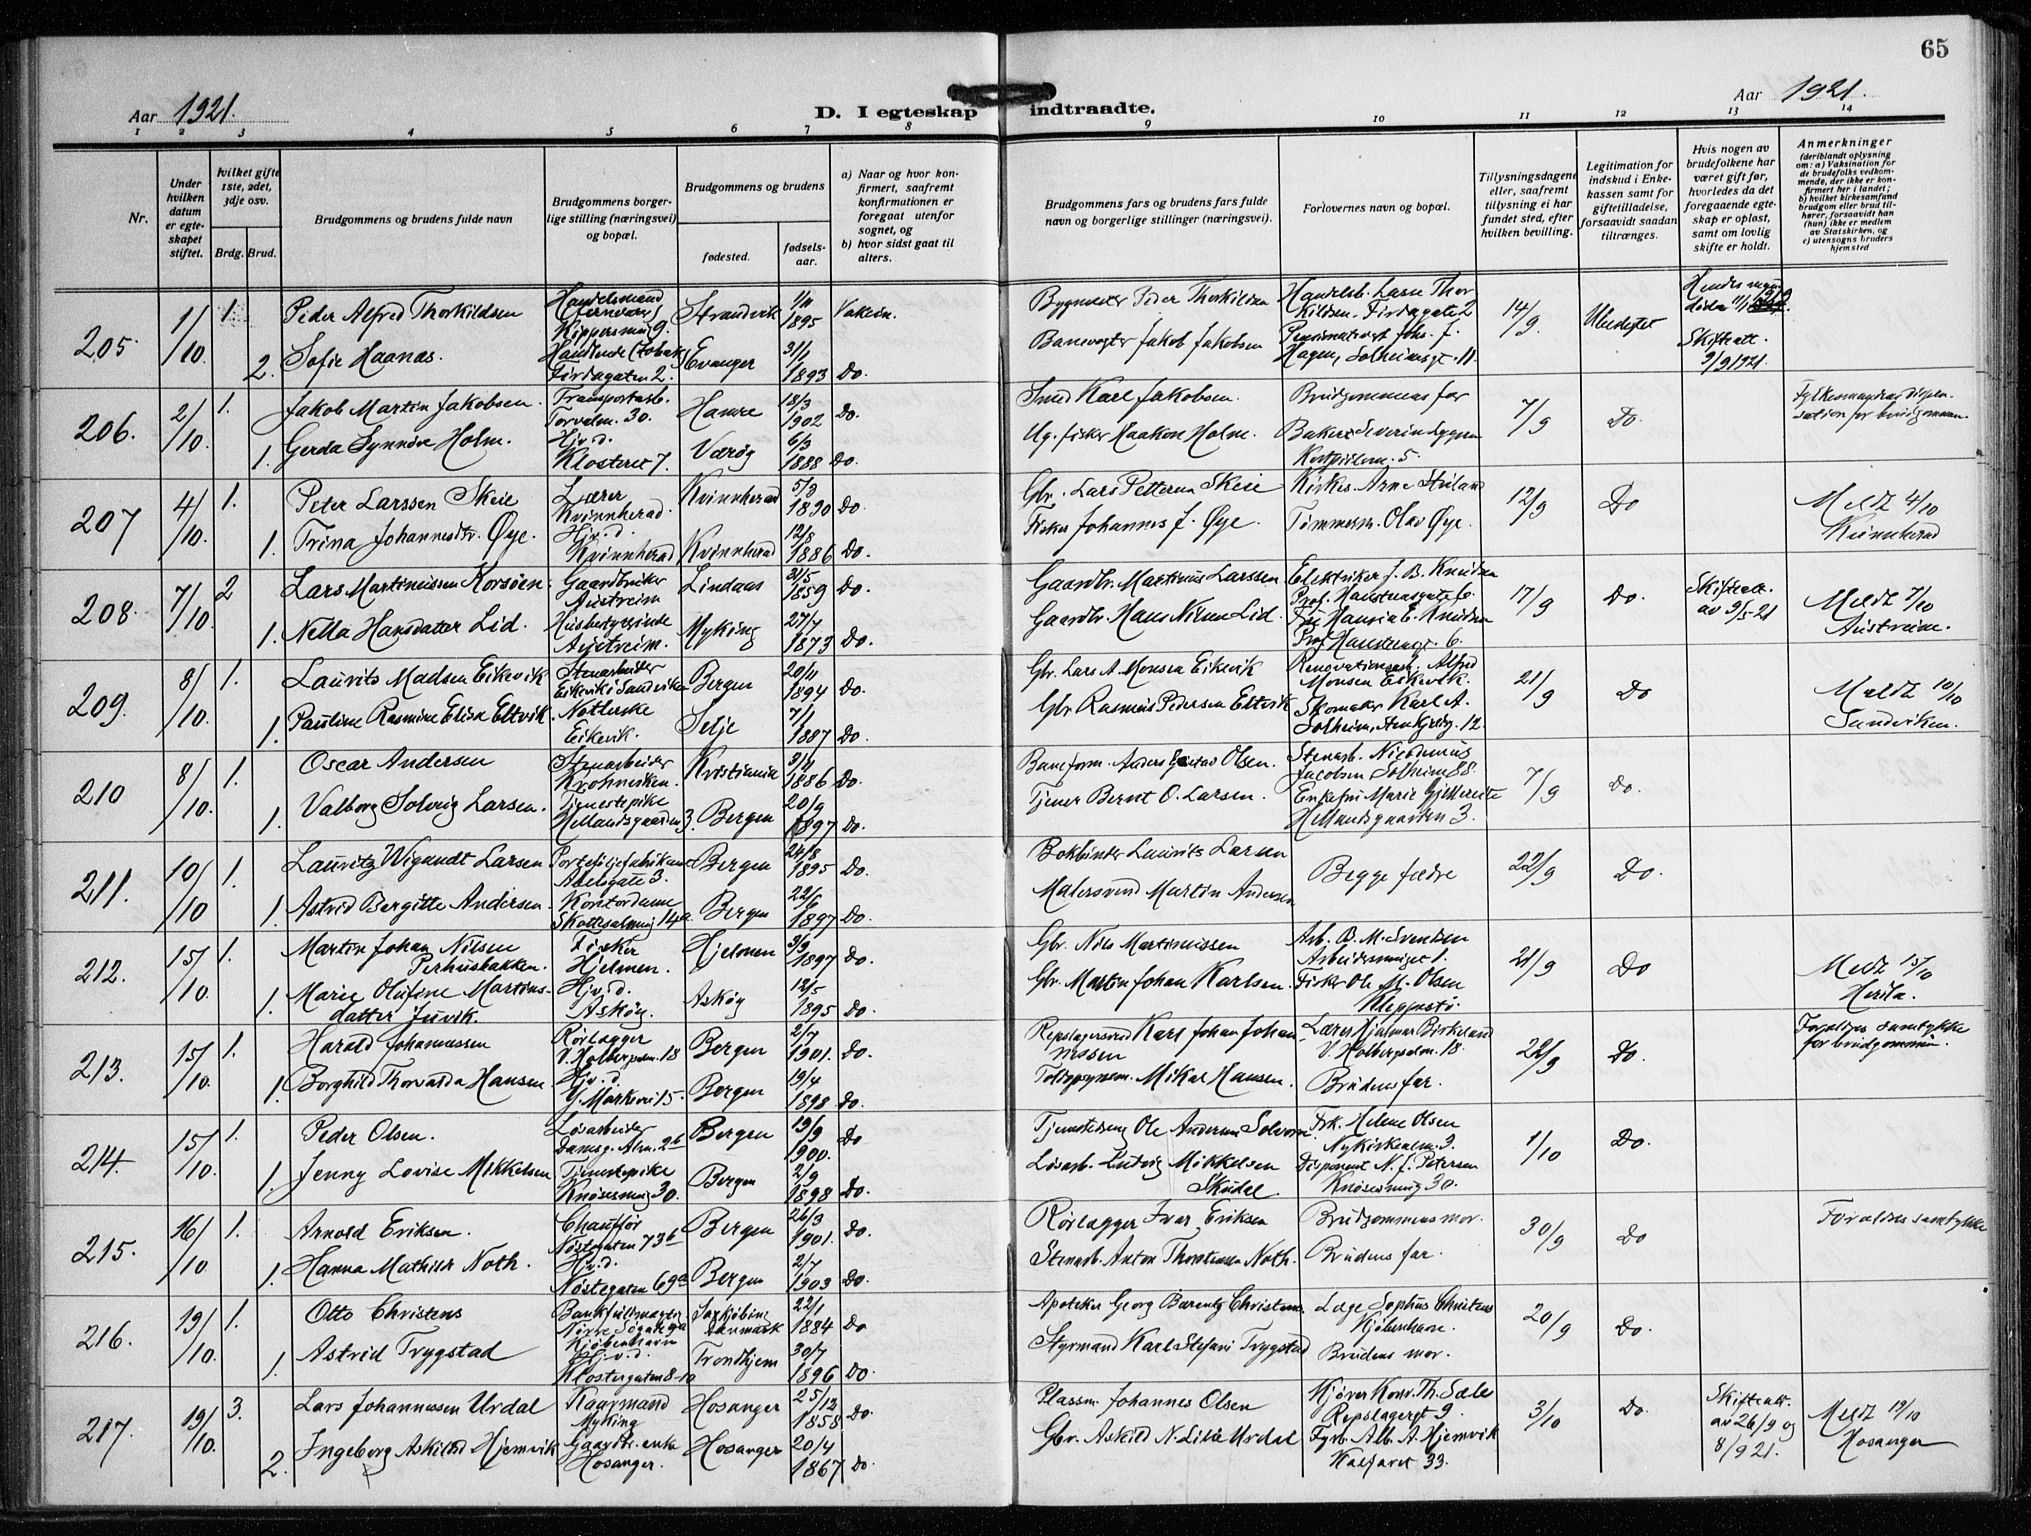 65
Aar 1921.
D. I egteskap indtraadte.
Aar 1921.
1 2 3 4 5 6 7 8 9 10 11 12 13 14
Nr.
Under hvilken datum er egteskapet stiftet.
hvilket gifte 1ste, 2det, 3dje osv.
Brdg. Brud.
Brudgommens og brudens fulde navn
Brudgommens borgerlige stilling (næringsvei) og bopæl.
Brudgommens og brudens
fødested.
fødselsaar.
a) Naar og hvor konfirmert, saafremt konfirmationen er foregaat utenfor sognet, og
b) hvor sidst gaat til alters.
Brudgommens fars og brudens fars fulde navn og borgerlige stillinger (næringsvei).
Forlovernes navn og bopæl.
Tillysningsdagene eller, saafremt tillysning ei har fundet sted, efter hvilken bevilling.
Legitimation for indskud i Enkekassen samt for giftetilladelse, forsaavidt saadan tiltrænges.
Hvis nogen av brudefolkene har været gift før, hvorledes da det foregaaende egteskap er opløst, samt om lovlig skifte er holdt.
Anmerkninger
(deriblandt oplysning om: a) Vaksination for de brudefolks vedkommende, der ikke er konfirmert her i landet; b) hvilket kirkesamfund brudgom eller brud tilhører, forsaavidt han (hun) ikke er medlem av Statskirken, og c) utensogns bruders hjemsted
205. 1/10. 1. Peder Alfred Thorkildsen Handelsmand Kippersmug 9. Strandvik 1/11 1895 Bygmester Peder Thorkildsen Handelsb. Lars Thorkildsen, Firdagate 2 14/9. Skifteatt. 9/9 1921.
2. Sofie Haanes. Handlende (tobak) Firdagaten 2. Evanger 31/1 1893 Do. Banevogter Jakob Jakobsen Hagen, Solheimsgt. 11.
206. 2/10. 1. Jakob Martin Jakobsen. Transportarb. Torvalm. 30. Hamre 18/3 1902 Do. Smed Karl Jakobsen. Brudgommens far 7/9 Do. Fylkesmandens dispensation for brudgommen.
1. Gerda Synnøve Holm. Hj.v.d. Klosteret 7. Værøy 6/3 1888 Do. Ug. fisker Haakon Holm. Baker Severin 5.
207 4/10. 1. Peter Larssen Skeie Lærer Kvinnherad. Kvinnherad 5/3 1890 Do. Gbr. Lars Petterson Skeie Kirkes. Arne 12/9 Do Meldt 4/10 Kvinnherad
1. Trina Johannesdtr. Øye. Hj.v.d. Kvinnherad Kvinnherad 12/8 1886 Do. Fisker Johannes J. Øye. Tømmerm. Olav Øye.
208. 7/10. 2 Lars Martinussen Korsøen. Gaardbruker Austreim Lindaas 31/5 1859 Do. Gaardbr. Martinus Larssen Elektriker J. B. Knudsen Prof. Hansteensgate 6. 17/9 Do. Skifteatt. av 9/5-21 Meldt 7/10 Austreim.
1. Nella Hansdatter Lid. Husbestyrerinde Austreim. Myking 27/4 1873 Do. Gaardbr. Hans Nilsen Lid. Knudsen Prof. Hansteensgt 6.
209. 8/10. 1. Laurits Madsen Eikevik Stenarbeider Eikevik i Sandviken Bergen 20/11 1894 Do. Gbr. Lars A. Monsen Eikevik Renovationsarb. Alfred Monsen Eikevik. 21/9 Do Meldt 10/10 Sandviken.
1. Pauline Rasmine Elisa Eltvik. Eikevik. Selje 7/1 1887 Do. Gbr. Rasmus Pedersen Eltvik Skomaker Karl A. Solheim, 12.
210 8/10. 1. Oscar Andersen Stenarbeider Kristiania 3/11 1886 Do. Baneform. Anders Gustav Olsen. Stenarb. Nicodemus Jacobsen Solheim 88. 7/9 Do.
1. Valborg Solveig Larsen. Tjenestepike Hellandsgaarden 3. Bergen 20/9 1897 Do. Tjener Bernt O. Larsen. Enkefru Marie Hellandsgaarden 3.
211. 10/10 1. Lauritz Wigandt Larsen Porteføljefabrikant Absalonsgate 3. Bergen 24/8 1895 Do. Bokbinder Laurits Larsen Begge fædre 22/9 Do.
1. Astrid Bergitte Andersen. Kontordame Skottesalmug 14a Bergen 22/6 1897 Do. Malersvend Martin Andersen
212. 15/10. 1. Martin Johan Nilsen Perhusbakken. Fisker Hjelmen. Hjelmen 3/9 1897 Do. Gbr. Nils Martinussen Arb. B. M. Svendsen 21/9 Do Meldt 15/10 Herdla.
1. Marie Olufine Martinsdatter Juvik. Hj.v.d. Askøy. Askøy 12/5 1895 Do. Gbr. Martin Johan Karlsen. Fisker Ole M. Olsen Kleppestø
213. 15/10. 1. Harald Johannessen Rørlægger V. Holbergsalm. 18 Bergen 2/7 1901. Do. Repslagersvend Karl Johan Johannessen Lærer Hjalmar Birkeland V. Holbergsalm. 18. 22/9 Do. Forældres samtykke for brudgommen.
1. Borghild Thorvalda Hansen Hj.v.d. Y. Markevei 15 Bergen 19/4 1898 Do. Toldopsynsm. Mikal Hansen. Brudens far.
214. 15/10. 1. Peder Olsen. Løsarbeider Damsg. Alm. 26 Bergen 19/9 1900. Do Tjenstedreng Ole Andersen Frk. Helene Olsen Nykirkealm. 3. 1/10 Do.
1. Jenny Lovise Mikkelsen Tjenestepike Knøsesmug 30. Bergen 2/9 1898 Do. Løsarb. Ludvig Mikkelsen Skudal Disponent N. J. Petersen Knøsesmug 30.
215. 16/10 1. Arnold Eriksen. Chauffør Nøstegaten 73b Bergen 26/3 1901. Do. Rørlægger Ivar Eriksen Brudgommens mor. 30/9 Do Forældres samtykke
1. Hanna Mathilde Noth. Hj.v.d. Nøstegaten 69a Bergen 2/7 1903 Do. Stenarb. Anton Thorstensen Noth. Brudens far.
216. 19/10. 1. Otto Christens Bankfuldmægtig Kjøbenhavn Saxkjøbing Danmark 22/1 1884 Do Apoteker Georg Barentz Christens. Læge Sophus Christens Kjøbenhavn. 20/9 Do.
1. Astrid Trygstad Hj.v.d. Klostergaten 8-10 Trondhjem 30/7 1896 Do. Styrmand Karl Stefani Trygstad Brudens mor.
217. 19/10. 3. Lars Johannessen Urdal Kaarmand Myking Hosanger 25/12 1858 Do. Plassm. Johannes Olsen Kjører Konr. Th. Sæle Repslagergt 9. 3/10 Do. Skifteatt. av 26/9 og 8/9 21. Meldt 19/10 Hosanger
2. Ingeborg Askildsd Hjemvik Gaardbr. enke Hosanger. Hosanger 20/4 1867 Do. Gbr. Askild N. Lille Urdal Fyrb. Alb. A. Hjemvik Kalfaret 33.